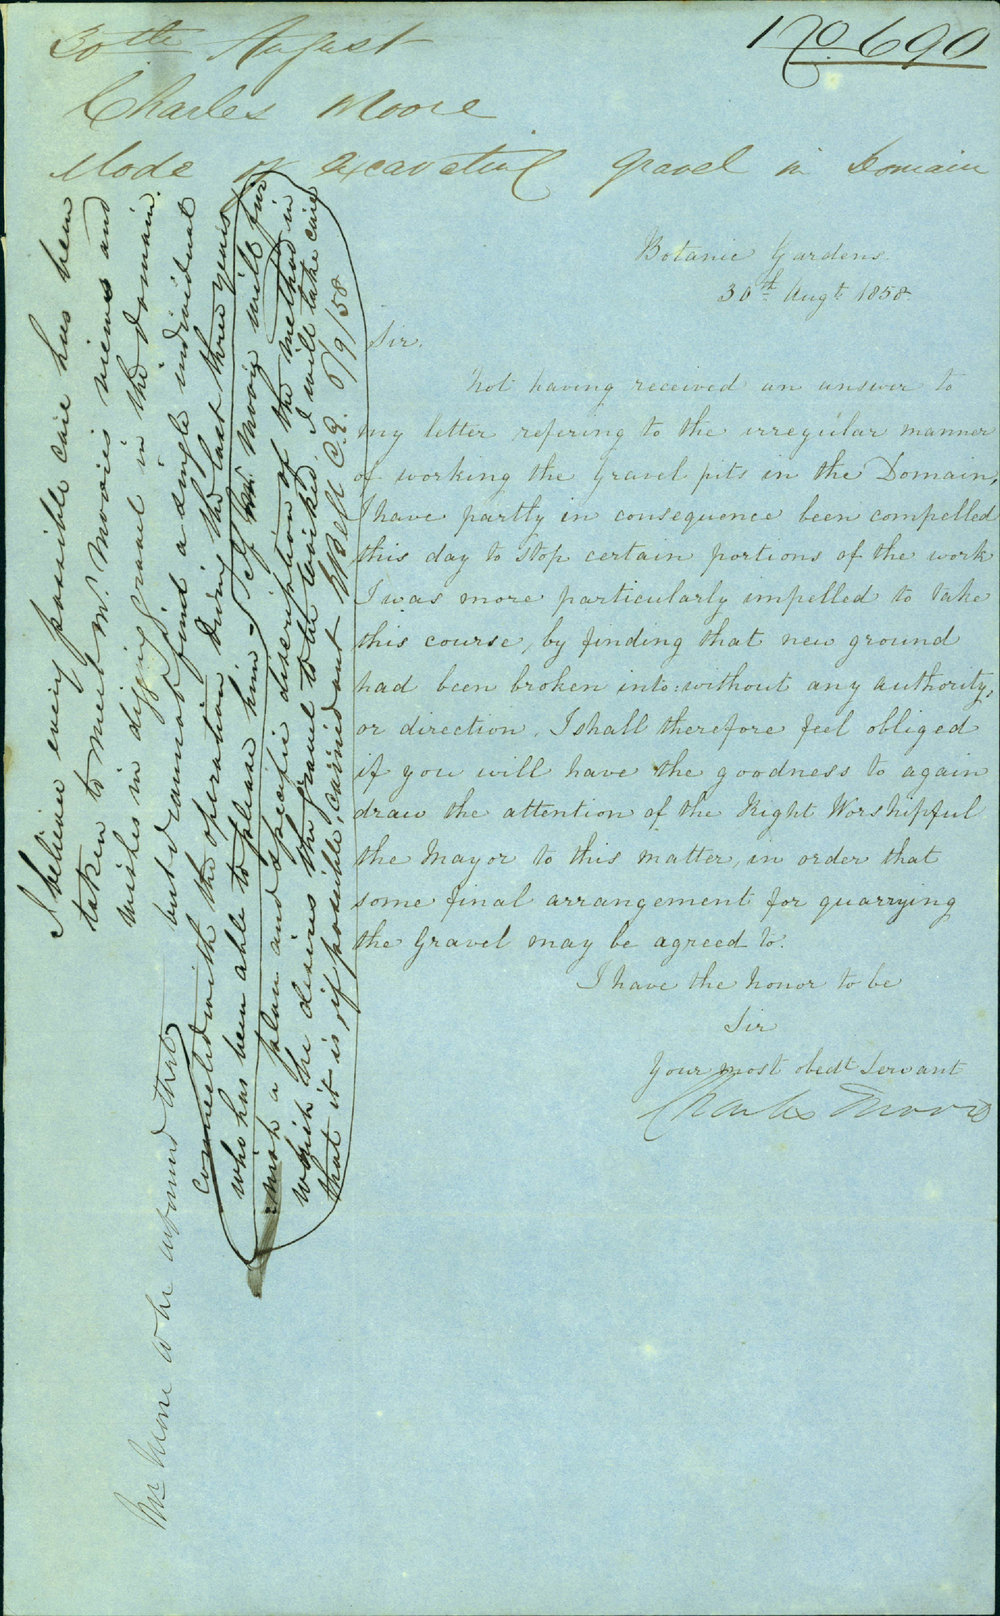 No 690
30th August
Charles Moore
Mode of excavating gravel in Domain
Botanic Gardens.
30th Augt 1858
Sir,
Not having received an answer to
my letter refering to the irregular manner
of working the gravel pits in the Domain,
I have partly in consequence been compelled
this day to stop certain portions of the work
I was more particularly impelled to take
this course, by finding that new ground
had been broken into: without any authority,
or direction. I shall therefore feel obliged
if you will have the goodness to again
draw the attention of the Right Worshipful
the Mayor to this matter, in order that
some final arrangement for quarrying
the Gravel may be agreed to.
I have the honor to be
Sir
Your most obedt Servant
Charles Moore
I believe every possible care has been
taken to meet Mr. Moore's views and
wishes in digging gravel in the Domain.
but I cannot find a single individual
connected with the operation during the last three years
who has been able to please him - If Mr. Moore will fur
:nish a plan and specific discription of the method in
which he desires the gravel to be worked I will take care
that it is, if possible, carried out EBell C.E. 6/9/58
Mr Moore to be informed that